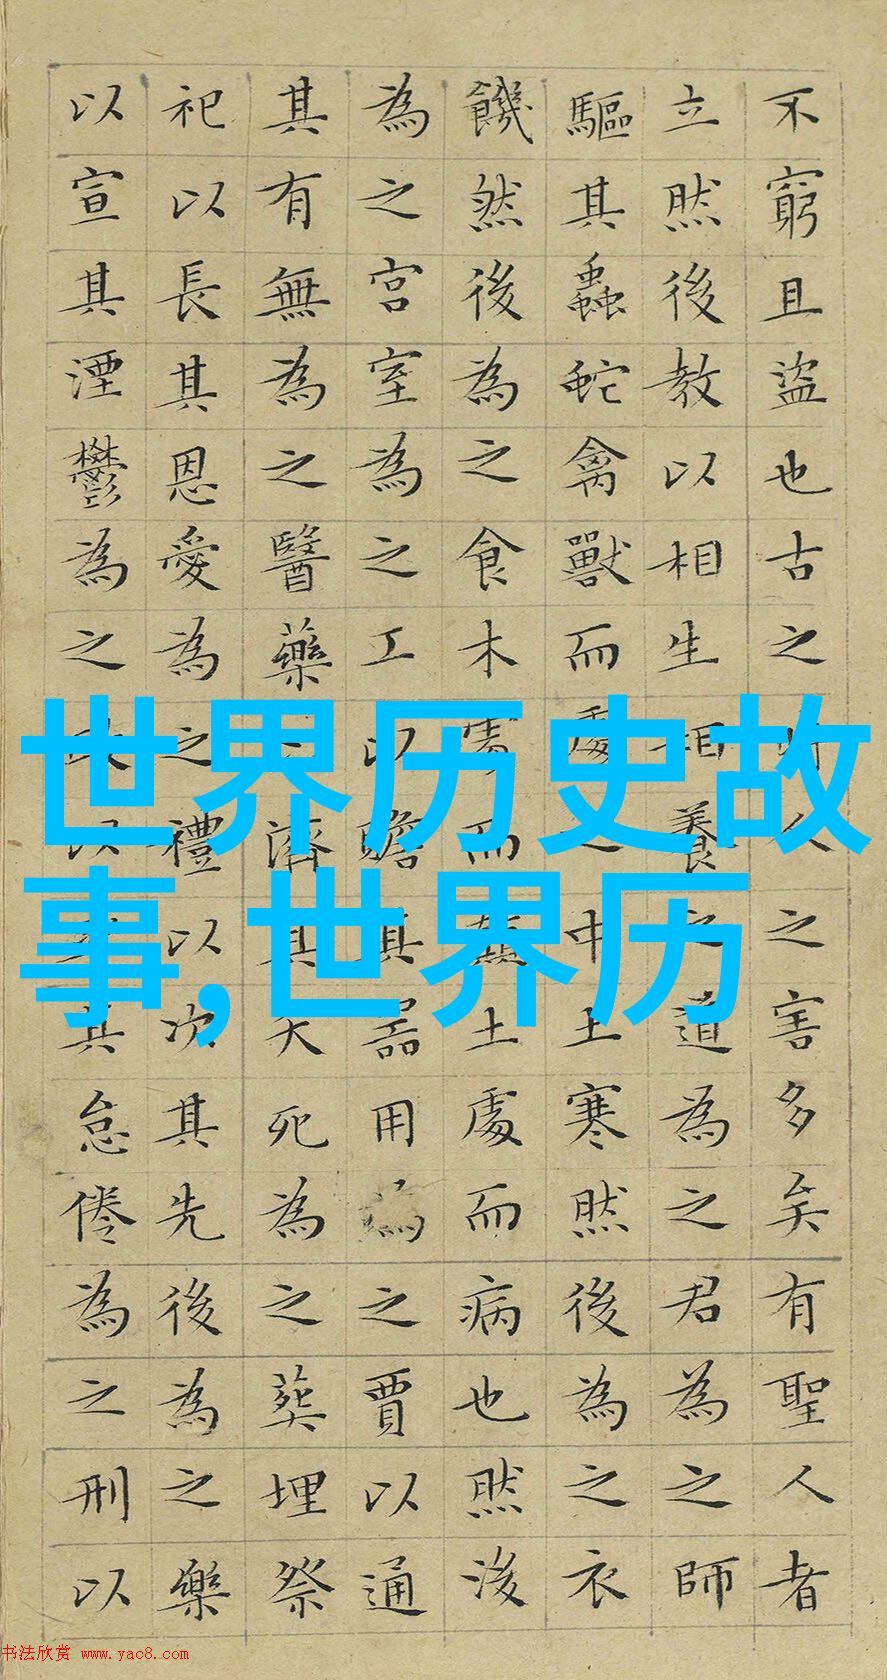 不窮且盜也古之之害多矣有聖人者
立然後教以相生相養之道為之君為之師
驅其蟲蛇禽獸而處之中土寒然後為之衣
饑然後為之食木處而土處而病也然後
為之宮室為之工以贍其器用為之賈以通
其有無為之醫藥濟其夭死為之葬埋祭
祀以長其恩愛為之禮以次其先後為之樂
以宣其湮鬱為之以其怠倦為之刑以
世界历史故
事,世界历
书法欣赏 www.yac8.com